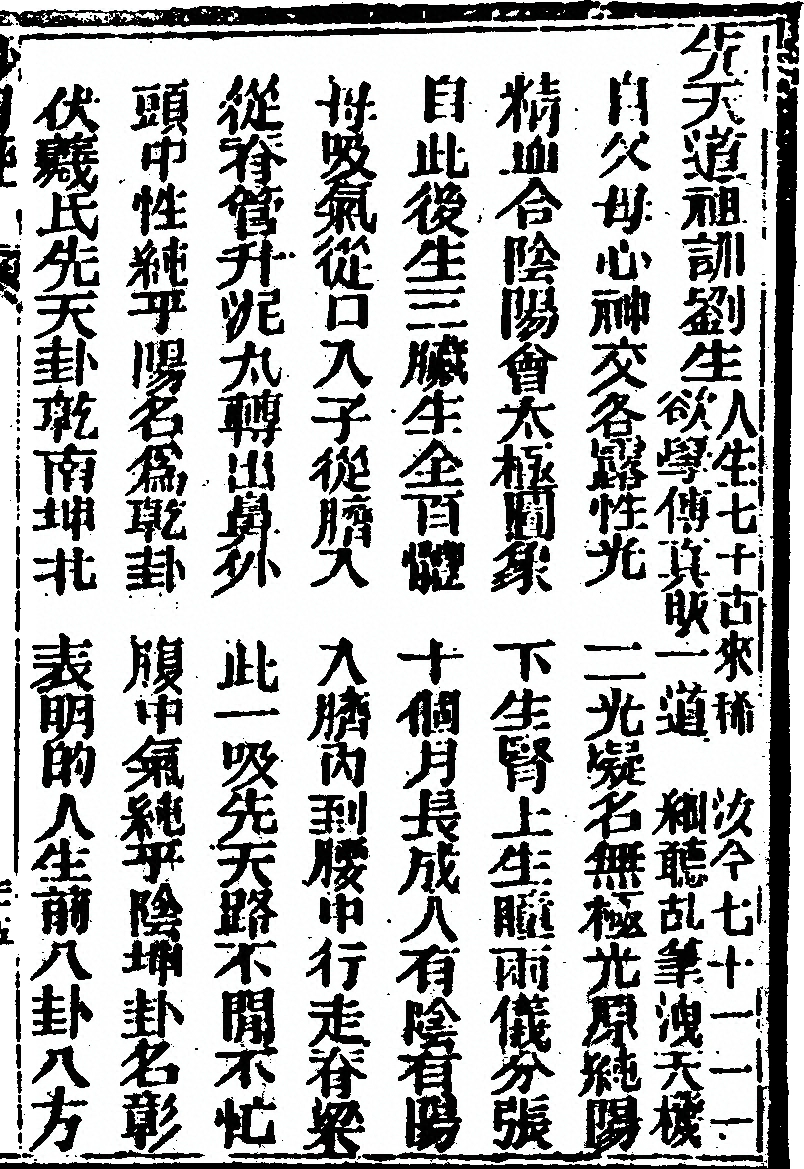 先天道祖訓劉生
人生七十古來稀 汝今七十一一一
欲學傳真眧一道 細聽乱筆洩天機
自父母心神交各露性光 二光凝名無極光原純陽
精血合陰陽會太極圖象 下生腎上生瞳兩儀分張
自此後生三臟生全百體 十個月長成人有陰有陽
母吸氣從口入子從臍入 入臍內到腰中行走脊梁
從脊管升泥丸轉出鼻外 此一吸先天路不閒不忙
頭中性純乎陽名為乾卦 腹中氣純乎陰坤卦名彰
伏羲氏先天卦乾南坤北 表明的人生前八卦八方